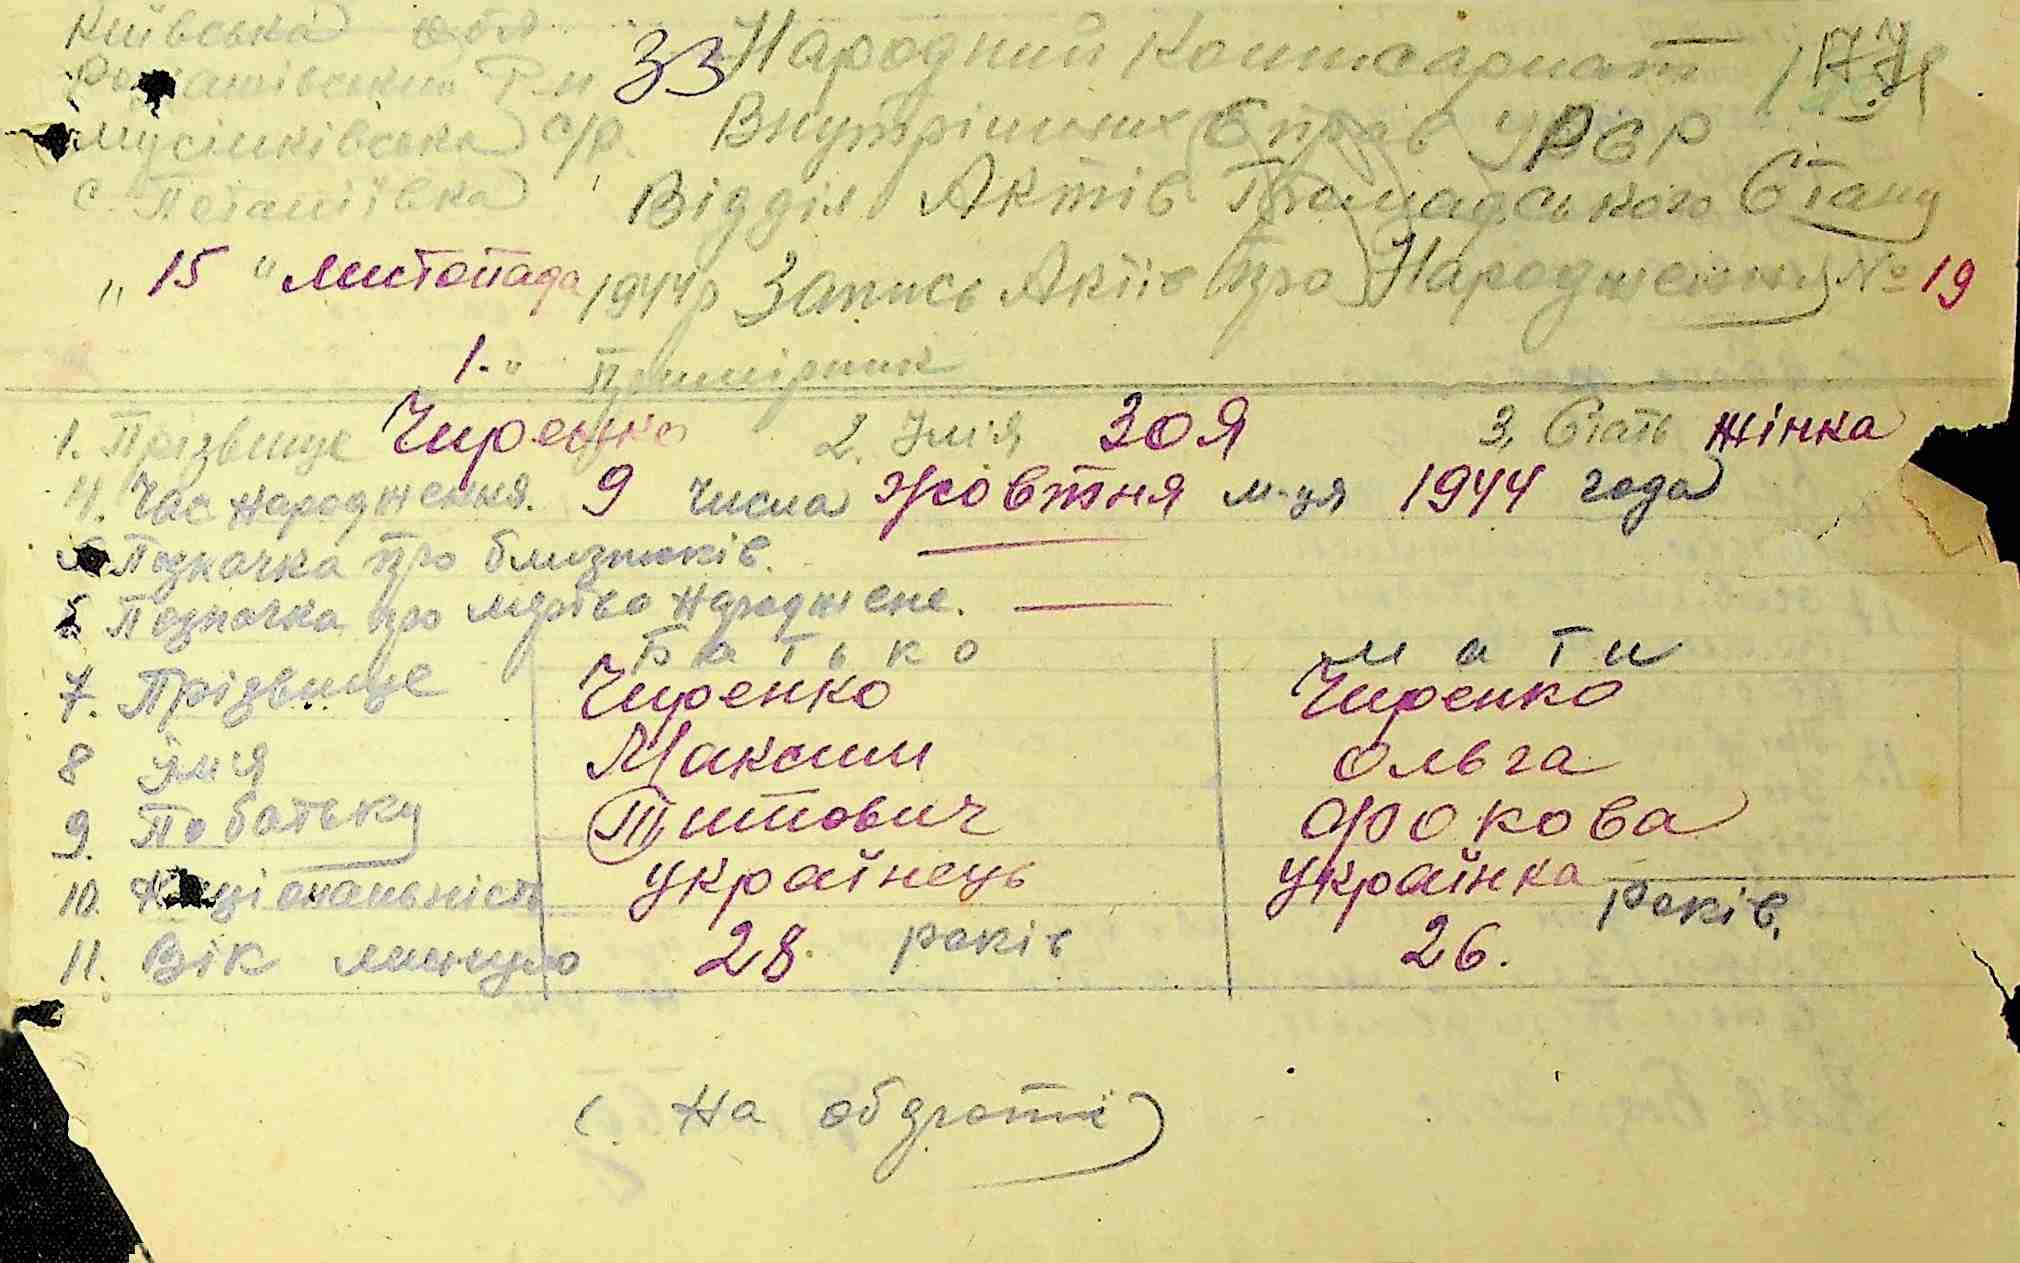 Київська обл
Рокитнівський Р-н
с/р.
с. Пегашівка
33
177
Народний Комісаріат
Внутрішних Справ УРСР
Відділ Актів Громадського Стану
„ 15 " листопада 1944р Запись Актів про Народження № 19
1.„ Примірник
1. Прізвище Чиренко 2. Імія 3оя 3. Стать жінка
4. Час народження. 9 числа жовтня м-ця 1944 года
Позначка про близнюків. —
Позначка про мертво народжене. —
Батько Мати
7. Прізвище Чиренко Чиренко
8 Їм'я Максим Ольга
9. Побатьку Титович Фокова
10. Національність українець українка
11. Вік минуло 28. років 26. років.
(. На обороті)